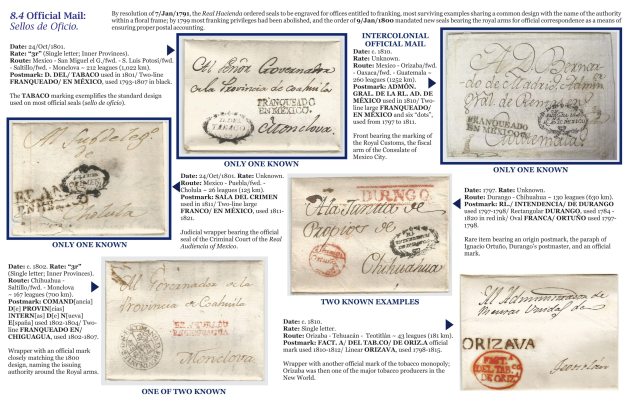 8.4 Official Mail:
Sellos de Oficio.
By resolution of 7/Jan/1791, the Real Hacienda ordered seals to be engraved for offices entitled to franking, most surviving examples sharing a common design with the name of the authority
within a floral frame; by 1799 most franking privileges had been abolished, and the order of 9/Jan/1800 mandated new seals bearing the royal arms for official correspondence as a means of
ensuring proper postal accounting.
Date: 24/Oct/1801.
Rate: "3r" (Single letter; Inner Provinces).
Route: Mexico - San Miguel el G./fwd. - S. Luis Potosí/fwd.
- Saltillo/fwd. - Monclova ~ 212 leagues (1,022 km).
Postmark: D. DEL/ TABACO used in 1801/ Two-line
FRANQUEADO/ EN MÉXICO, used 1793-1807 in black.
The TABACO marking exemplifies the standard design
used on most official seals (sello de oficio).
Governador
de la Provincia de Coahuila
FRANQUEADO
EN MEXICO
D. DEL
TABACO
Monclova
ONLY ONE KNOWN
INTERCOLONIAL
OFFICIAL MAIL
Date: c. 1810.
Rate: Unknown.
Route: Mexico - Orizaba/fwd.
- Oaxaca/fwd. - Guatemala ~
260 leagues (1252 km).
Postmark: ADMÓN.
GRAL. DE LA RL. AD. DE
MÉXICO used in 1810/ Two-
line large FRANQUEADO/
EN MÉXICO and six "dots",
used from 1797 to 1811.
Front bearing the marking of
the Royal Customs, the fiscal
arm of the Consulate of
Mexico City.
FRANQUEADO
EN MEXICO
Guatemala
ONLY ONE KNOWN
ONLY ONE KNOWN
Date: 24/Oct/1801. Rate: Unknown.
Route: Mexico - Puebla/fwd. -
Cholula ~ 26 leagues (125 km).
Postmark: SALA DEL CRIMEN
used in 1811/ Two-line large
FRANCO/ EN MÉXICO, used 1811-
1821.
Judicial wrapper bearing the official
seal of the Criminal Court of the Real
Audiencia of Mexico.
DURNGO
A la Justicia de
Propios de
Chihuahua
TWO KNOWN EXAMPLES
Date: 1797. Rate: Unknown.
Route: Durango - Chihuahua ~ 130 leagues (630 km).
Postmark: RL./ INTENDENCIA/ DE DURANGO
used 1797-1798/ Rectangular DURANGO, used 1784 -
1820 in red ink/ Oval FRANCA/ ORTUÑO used 1797-
1798.
Rare item bearing an origin postmark, the paraph of
Ignacio Ortuño, Durango's postmaster, and an official
mark.
Date: c. 1802. Rate: "3r"
(Single letter; Inner Provinces).
Route: Chihuahua -
Saltillo/fwd. - Monclova
~ 167 leagues (700 km).
Postmark: COMAND[ancia]
D[e] PROVIN[cias]
INTERN[as] D[e] N[ueva]
E[spaña] used 1802-1804/ Two-
line FRANQUEADO EN/
CHIGUAGUA, used 1802-1807.
Wrapper with an official mark
closely matching the 1800
design, naming the issuing
authority around the Royal arms.
Governador de la
Provincia de Coahuila
Monclova
ONE OF TWO KNOWN
Date: c. 1810.
Rate: Single letter.
Route: Orizaba - Tehuacán - Teotitlán ~ 43 leagues (181 km).
Postmark: FACT. A/ DEL TAB.CO/ DE ORIZ.A official
mark used 1810-1812/ Linear ORIZAVA, used 1798-1815.
Wrapper with another official mark of the tobacco monopoly;
Orizaba was then one of the major tobacco producers in the
New World.
ORIZAVA
FACT.A
DEL TAB.CO
DE ORIZ.A